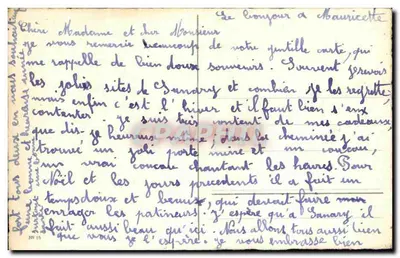 Le bonjour a Mauricette
Chère Madame et Monsieur
je vous remercie beaucoup de votre gentille carte, qui
me rappelle de bien doux souvenirs. Souvent je revois
les jolis sites de Sanary et combien je les regrette
mais enfin c'est l'hiver et il faut bien s'en
contenter. je suis très content de mes cadeaux
que dis-je heureux dans la cheminée j'ai
trouvé un joli porte mine et un coucou,
un vrai coucou chantant les heures. Pour
Noël et les jours precedents il a fait un
temps doux et beau, qui devait faire
enrager les patineurs. J'espère qu'a Sanary il
fait aussi beau qu'ici. Nous allons tous aussi bien
que vous je l'espère. je vous embrasse bien
fort tous deux en vous souhaitant
une bonne et heureuse année